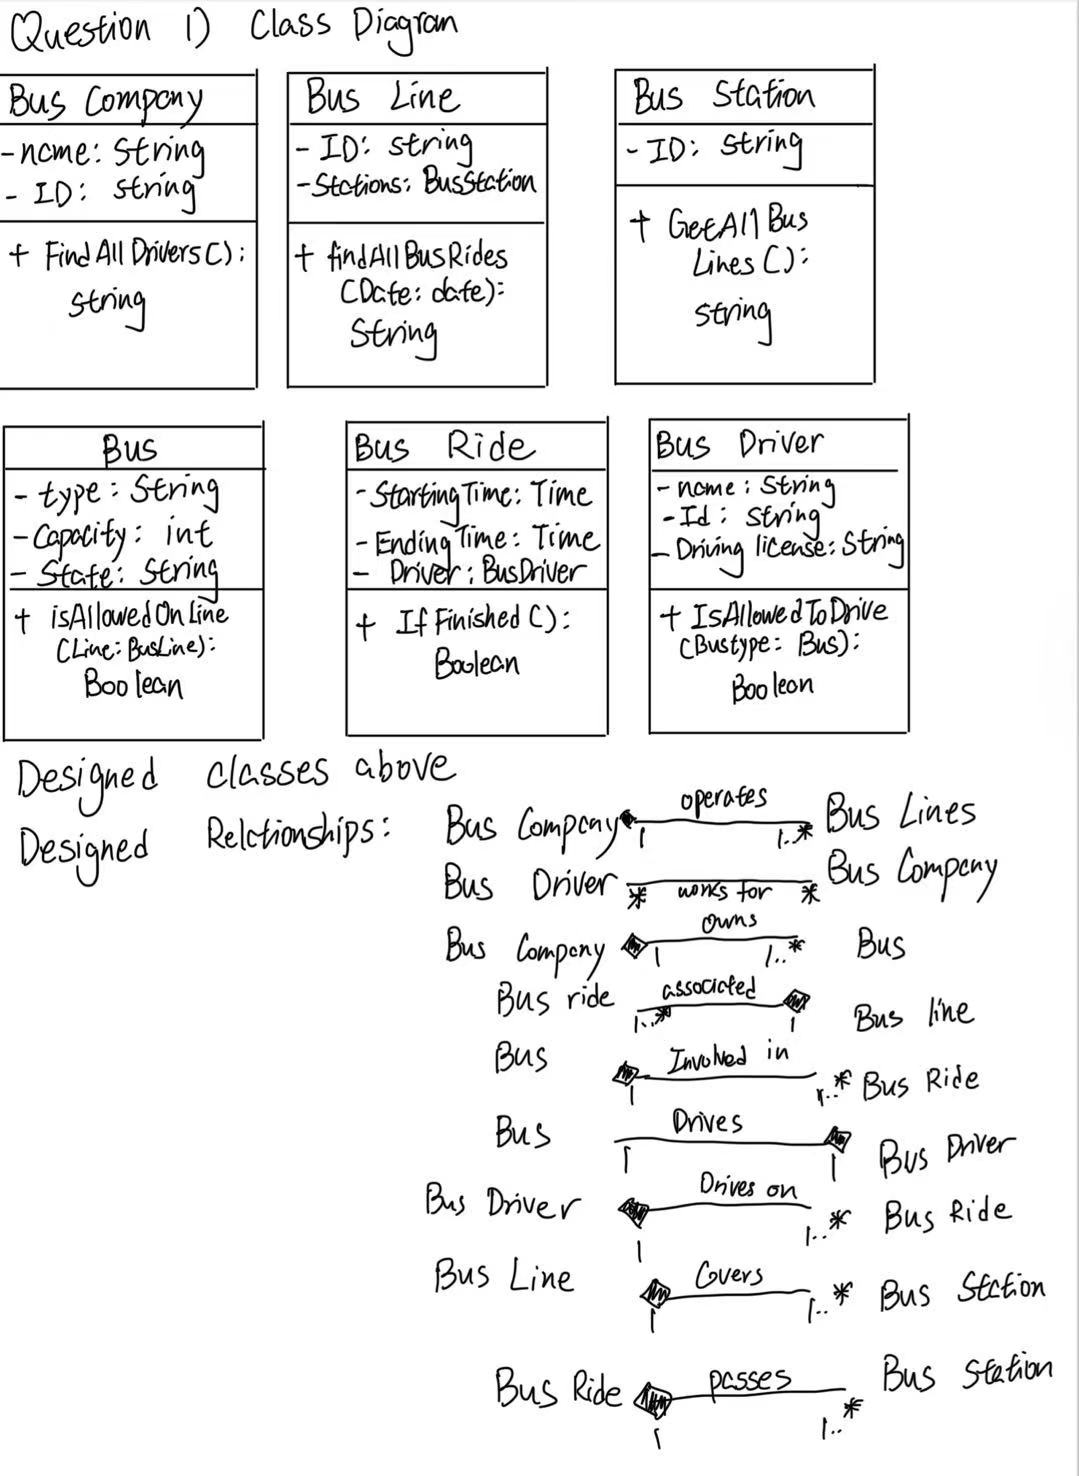 Question 1) Class Diagram
Bus Company
- name: String
- ID: string
+ FindAllDrivers():
string
Bus Line
- ID: string
- Stations: BusStation
+ findAllBusRides
(Date: date):
String
Bus Station
- ID: string
+ GetAllBus
Lines():
string
Bus
- type: String
- Capacity: int
- State: String
+ isAllowedOnLine
(Line: BusLine):
Boolean
Bus Ride
- StartingTime: Time
- EndingTime: Time
- Driver: BusDriver
+ IfFinished():
Boolean
Bus Driver
- name: String
- Id: String
- Driving license: String
+ IsAllowedToDrive
(Bustype: Bus):
Boolean
Designed classes above
Designed Relationships:
Bus Company 1 operates 1..* Bus Lines
Bus Driver * works for * Bus Company
Bus Company 1 owns 1..* Bus
Bus ride 1..* associated 1 Bus line
Bus 1 Involved in 1..* Bus Ride
Bus 1 Drives 1 Bus Driver
Bus Driver 1 Drives on 1..* Bus Ride
Bus Line 1 Covers 1..* Bus Station
Bus Ride 1 passes 1..* Bus Station